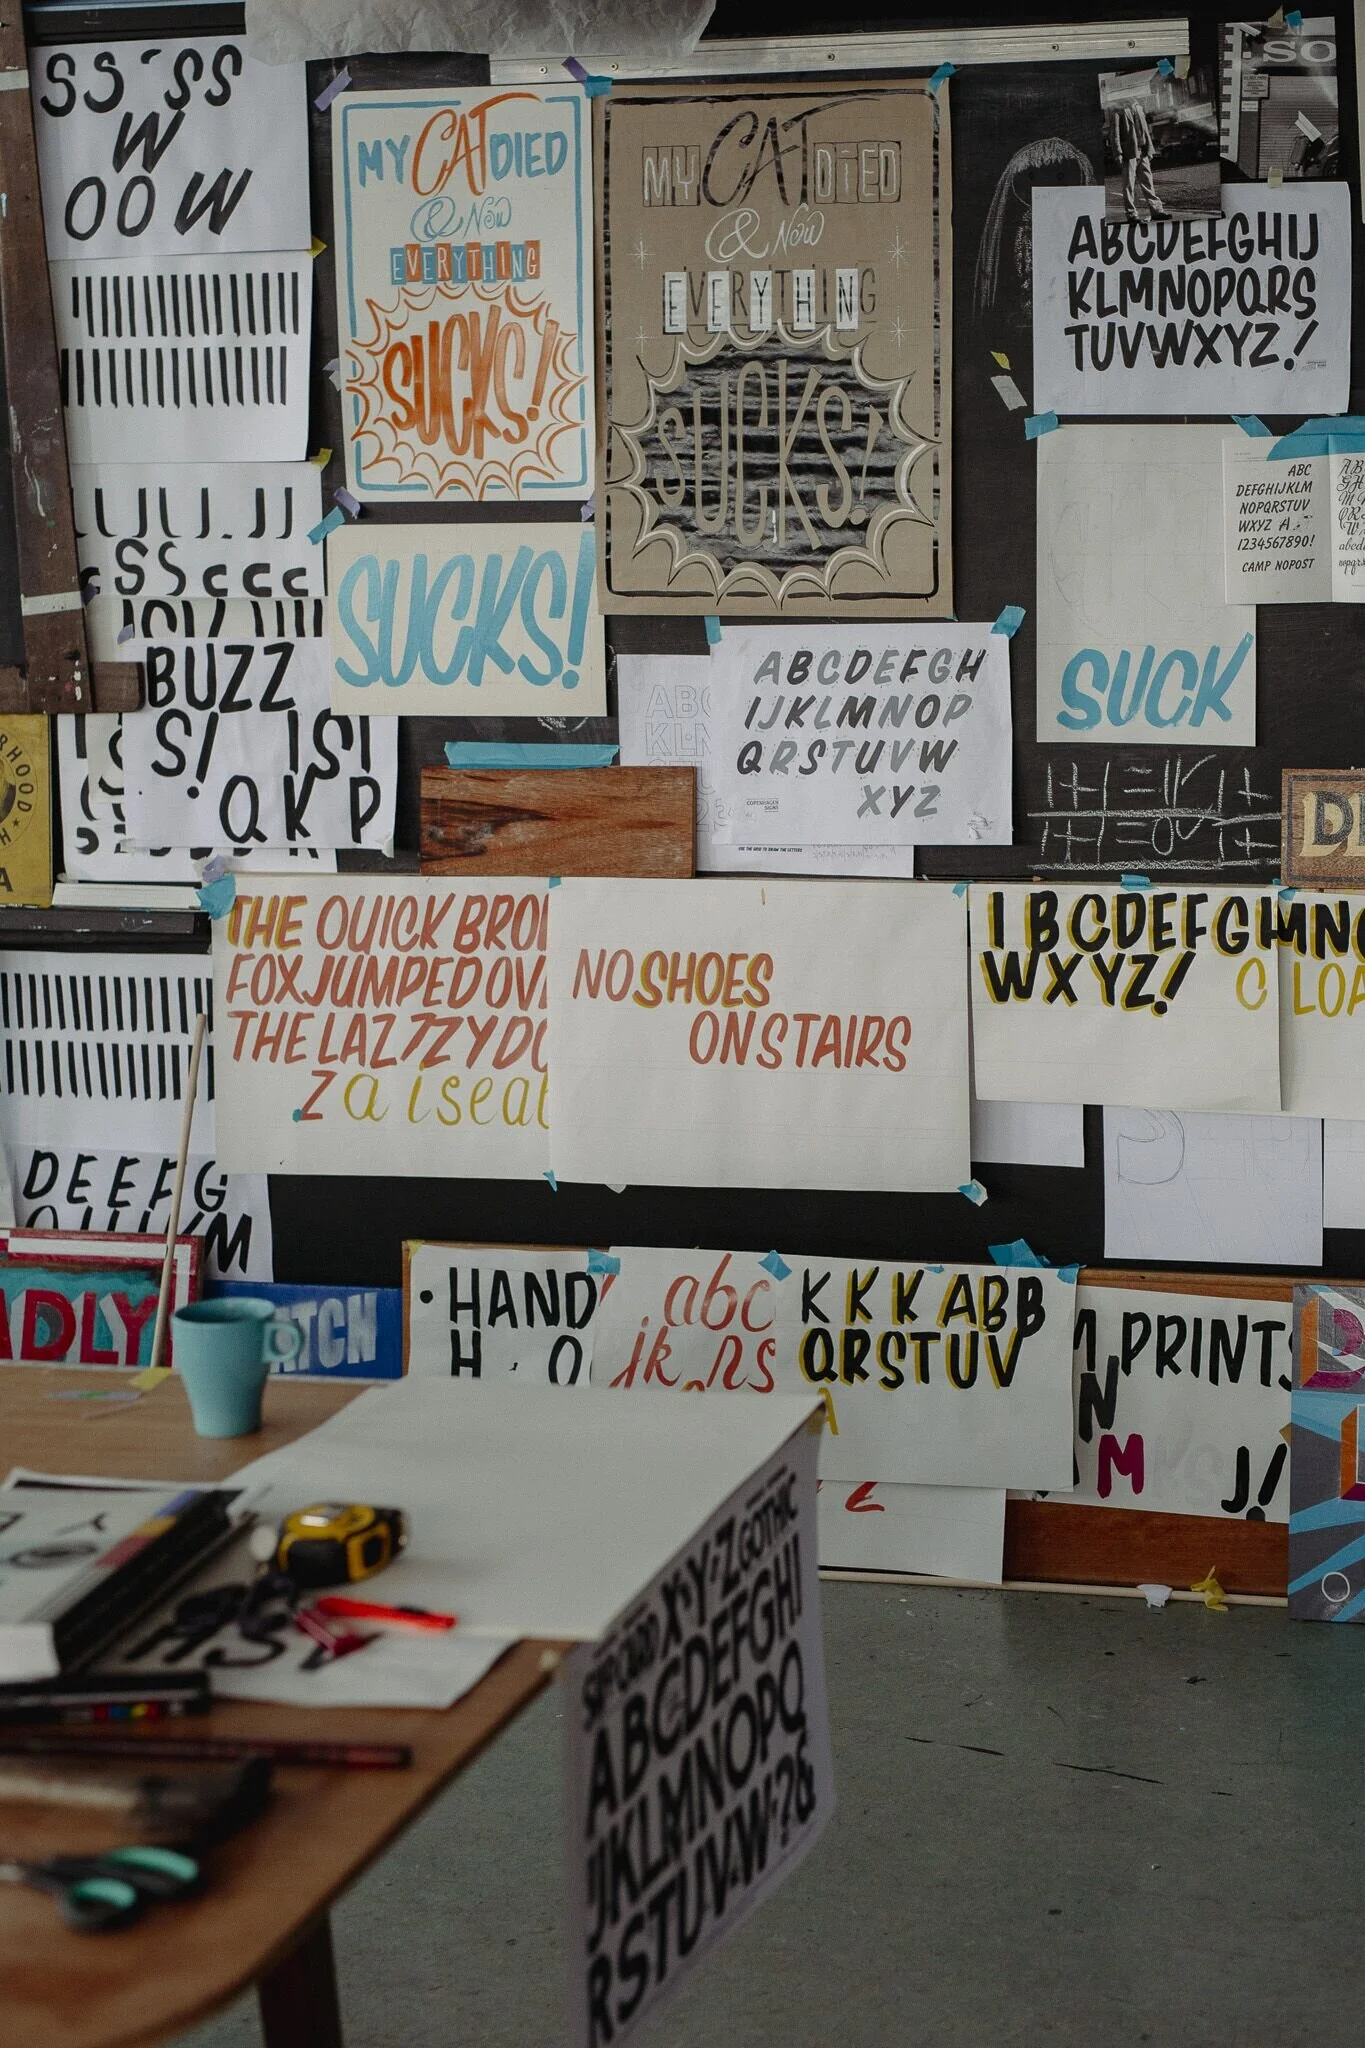 SS SS
W
OOW
MY CAT DIED
& Now
EVERYTHING
SUCKS!
MY CAT DIED
& Now
EVERYTHING
SUCKS!
SO
ABCDEFGHIJ
KLMNOPQRS
TUVWXYZ!
ABC
DEFGHIJKLM
NOPQRSTUV
WXYZ A
1234567890!
CAMP NOPOST
JJ
SS ccc
BUZZ
S! ISI
QKP
SUCKS!
SUCK
ABC
KLM
ABCDEFGH
IJKLMNOP
QRSTUVW
XYZ
COPENHAGEN
SIGNS
USE THE GRID TO DRAW THE LETTERS
1+1=
1+1=
THE QUICK BRO
FOX JUMPED OV
THE LAZ7ZZY DO
Z a iseat
NO SHOES
ON STAIRS
I BCDEFGH
WXYZ!
C
MNO
LOA
DEEFG
M
ADLY
ATCH
• HAND
H . O
abc
jk ns
KKKABB
QRSTUV
A
M PRINTS
N
M KS J!
Z
SHO CARD X·Y·Z GOTHIC
ABCDEFGHI
JKLMNOPQ
RSTUV·W·?&